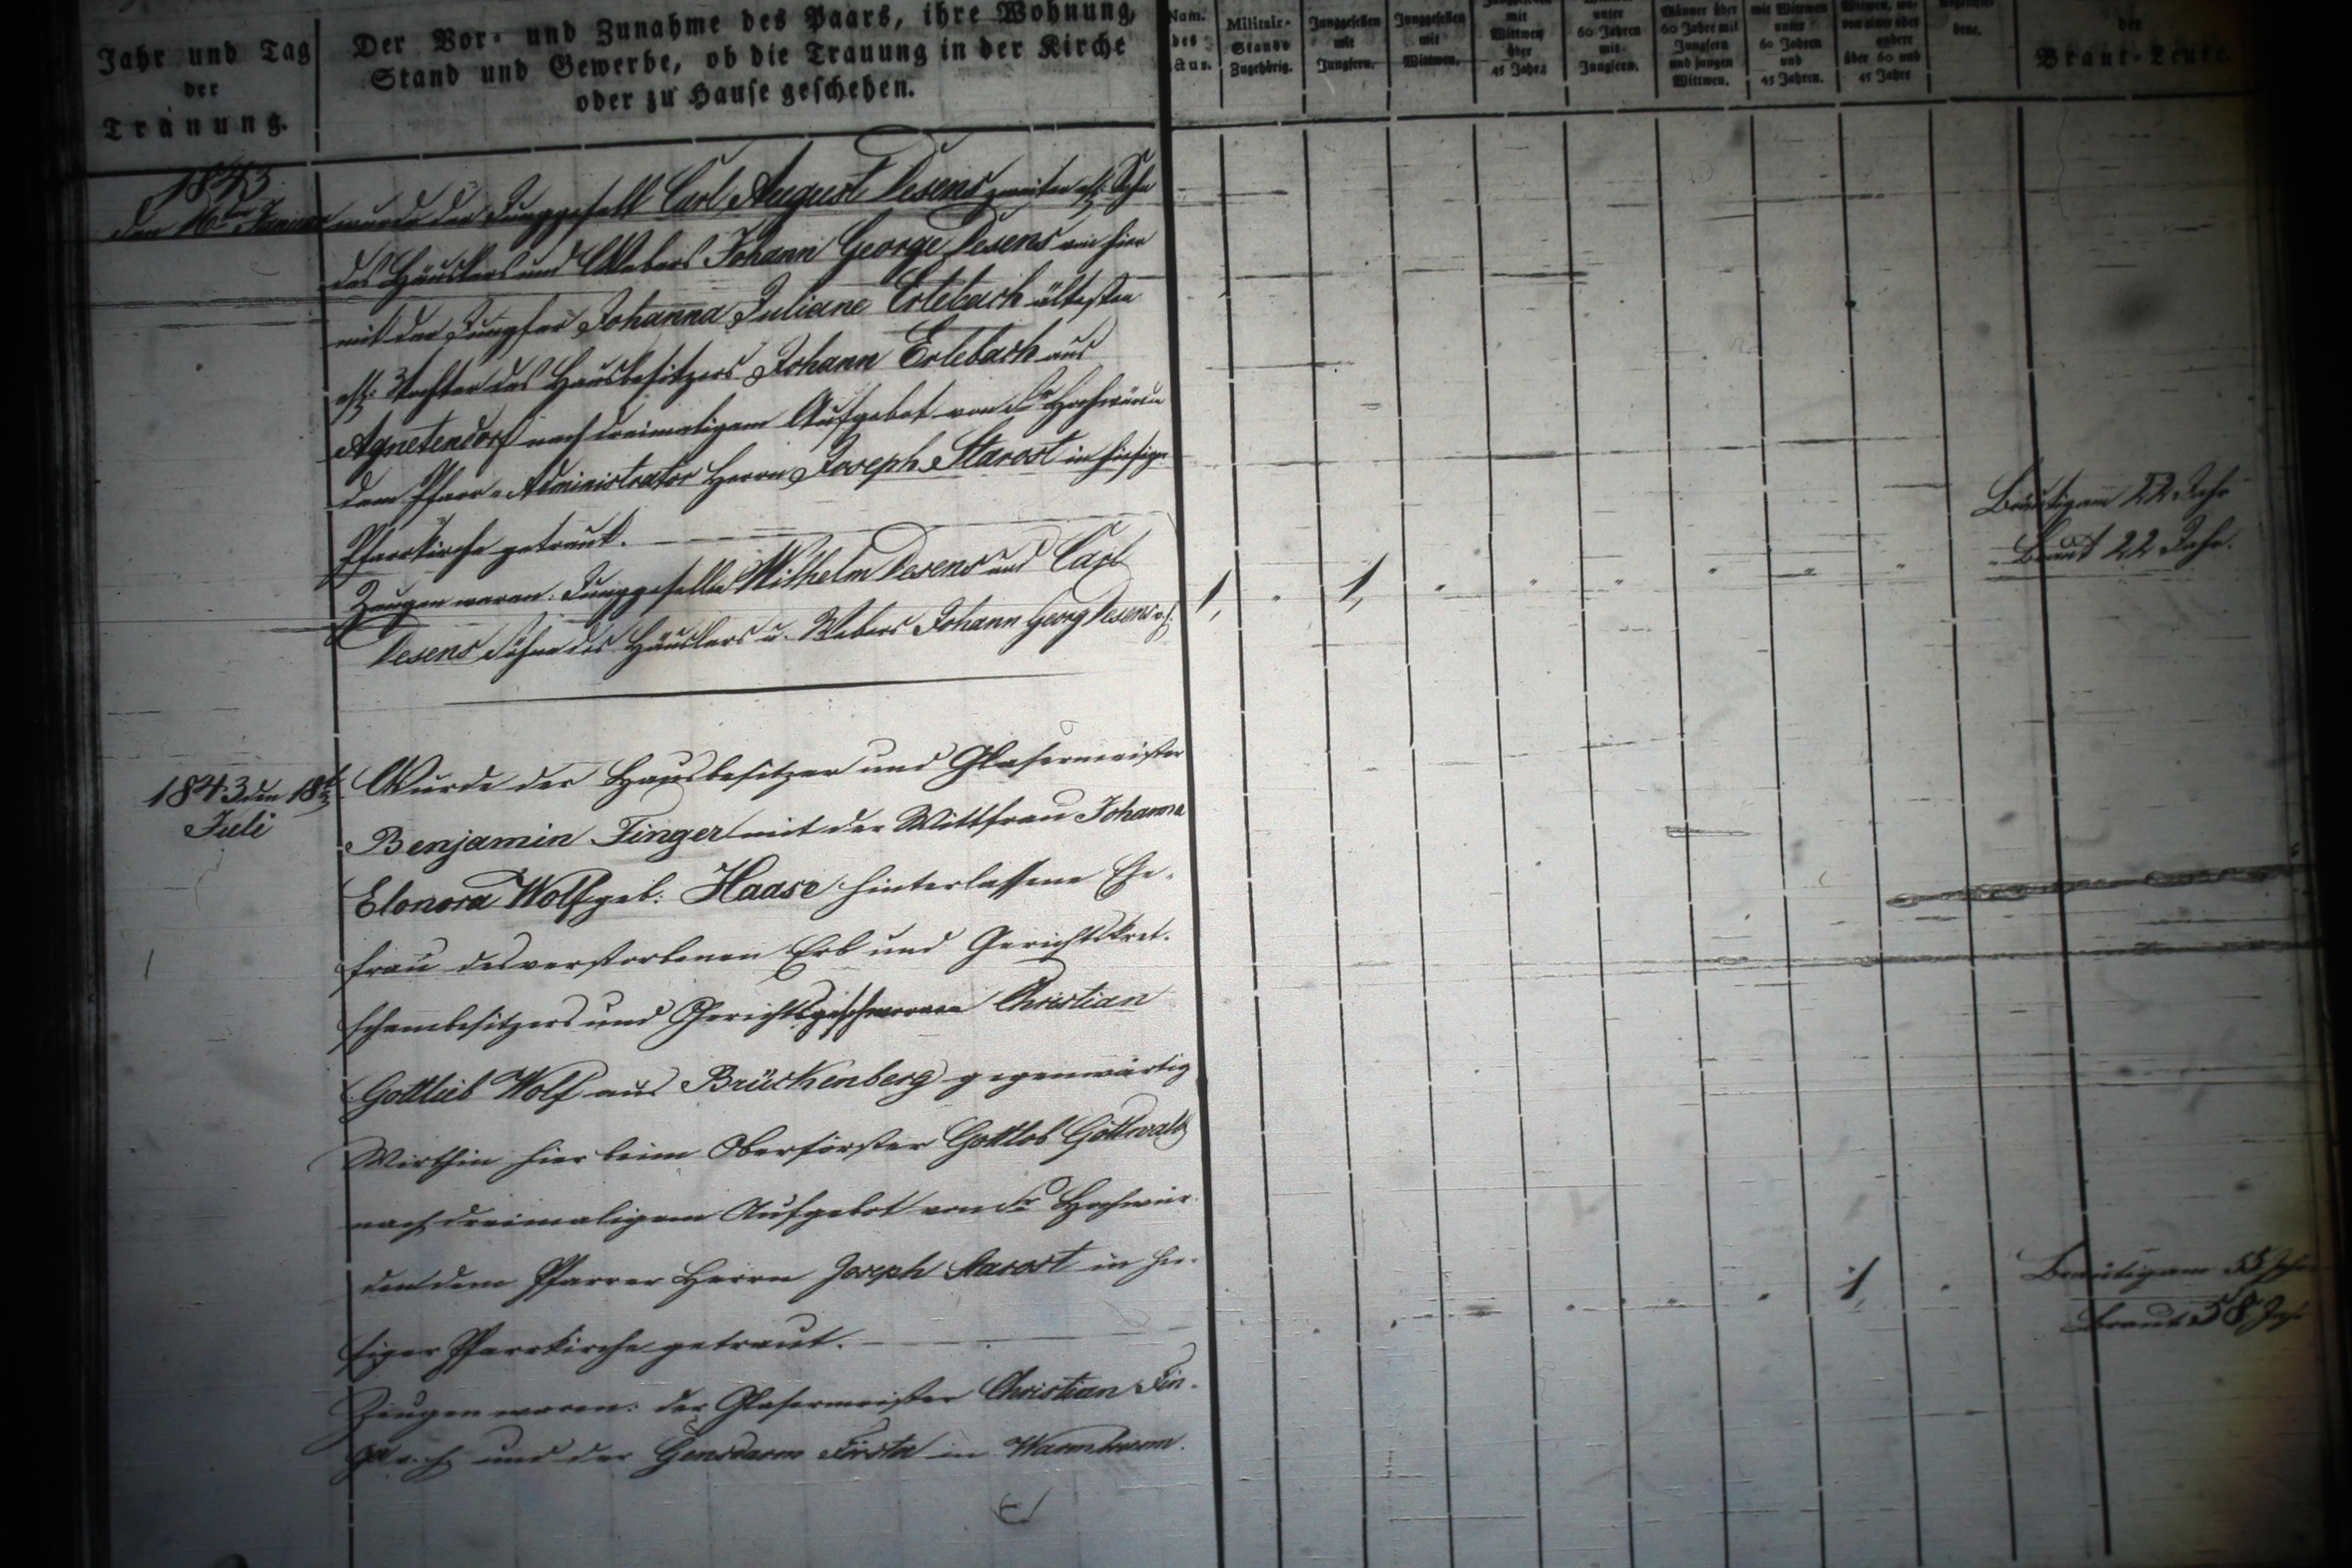 Jahr und Tag
der
Trauung.
Der Vor- und Zunahme des Paars, ihre Wohnung,
Stand und Gewerbe, ob die Trauung in der Kirche
oder zu Hause geschehen.
Nam.
des
Aus.
Militair-
Stande
Zugehörig.
Junggesellen
mit
Jungfern.
Junggesellen
mit
Wittwen.
mit
Wittwen
über
45 Jahre
unter
60 Jahren
mit
Jungfern.
Männer über
60 Jahre mit
Jungfern
und jungen
Wittwen.
mit Wittwen
unter
60 Jahren
und
45 Jahren.
über 60 und
45 Jahre
der
Braut-Leute.
1843
den 16ten Januar wurde der Junggesell Carl August Desens zweiter ehl. Sohn
des Häuslers und Webers Johann George Desens von hier
mit der Jungfer Johanna Juliane Erlebach ältesten
ehl. Tochter des Hausbesitzers Johann Erlebach aus
Agnetendorf nach dreimaligem Aufgebot von Sr Hochwürden
dem Pfarr-Administrator Herrn Joseph Starost in hiesiger
Pfarrkirche getraut.
Zeugen waren: Junggesellen Wilhelm Desens und Carl
Desens Söhne des Häuslers u. Webers Johann Georg Desens v. h.
1, " 1, " " " " " "
Bräutigam 22 Jahr
Braut 22 Jahr.
1843 den 18t
Juli
Wurde der Hausbesitzer und Glasermeister
Benjamin Finger mit der Wittfrau Johanna
Elonora Wolf geb: Haase hinterlassene Ehe-
frau des verstorbenen Erb und Gerichtskret-
schambesitzers und Gerichtsgeschwornen Christian
Gottlieb Wolf aus Brückenberg gegenwärtig
Wirthin hier beim Oberförster Gottlob Gottwald
nach dreimaligem Aufgebot von Sr Hochwür-
den dem Pfarrer Herrn Joseph Starost in hie-
siger Pfarrkirche getraut.
Zeugen waren: der Glasermeister Christian Fin-
ger v. h. und der Gensdarm Förster in Warmbrunn.
1,
Bräutigam 55 Jahr
Braut 58 Jahr